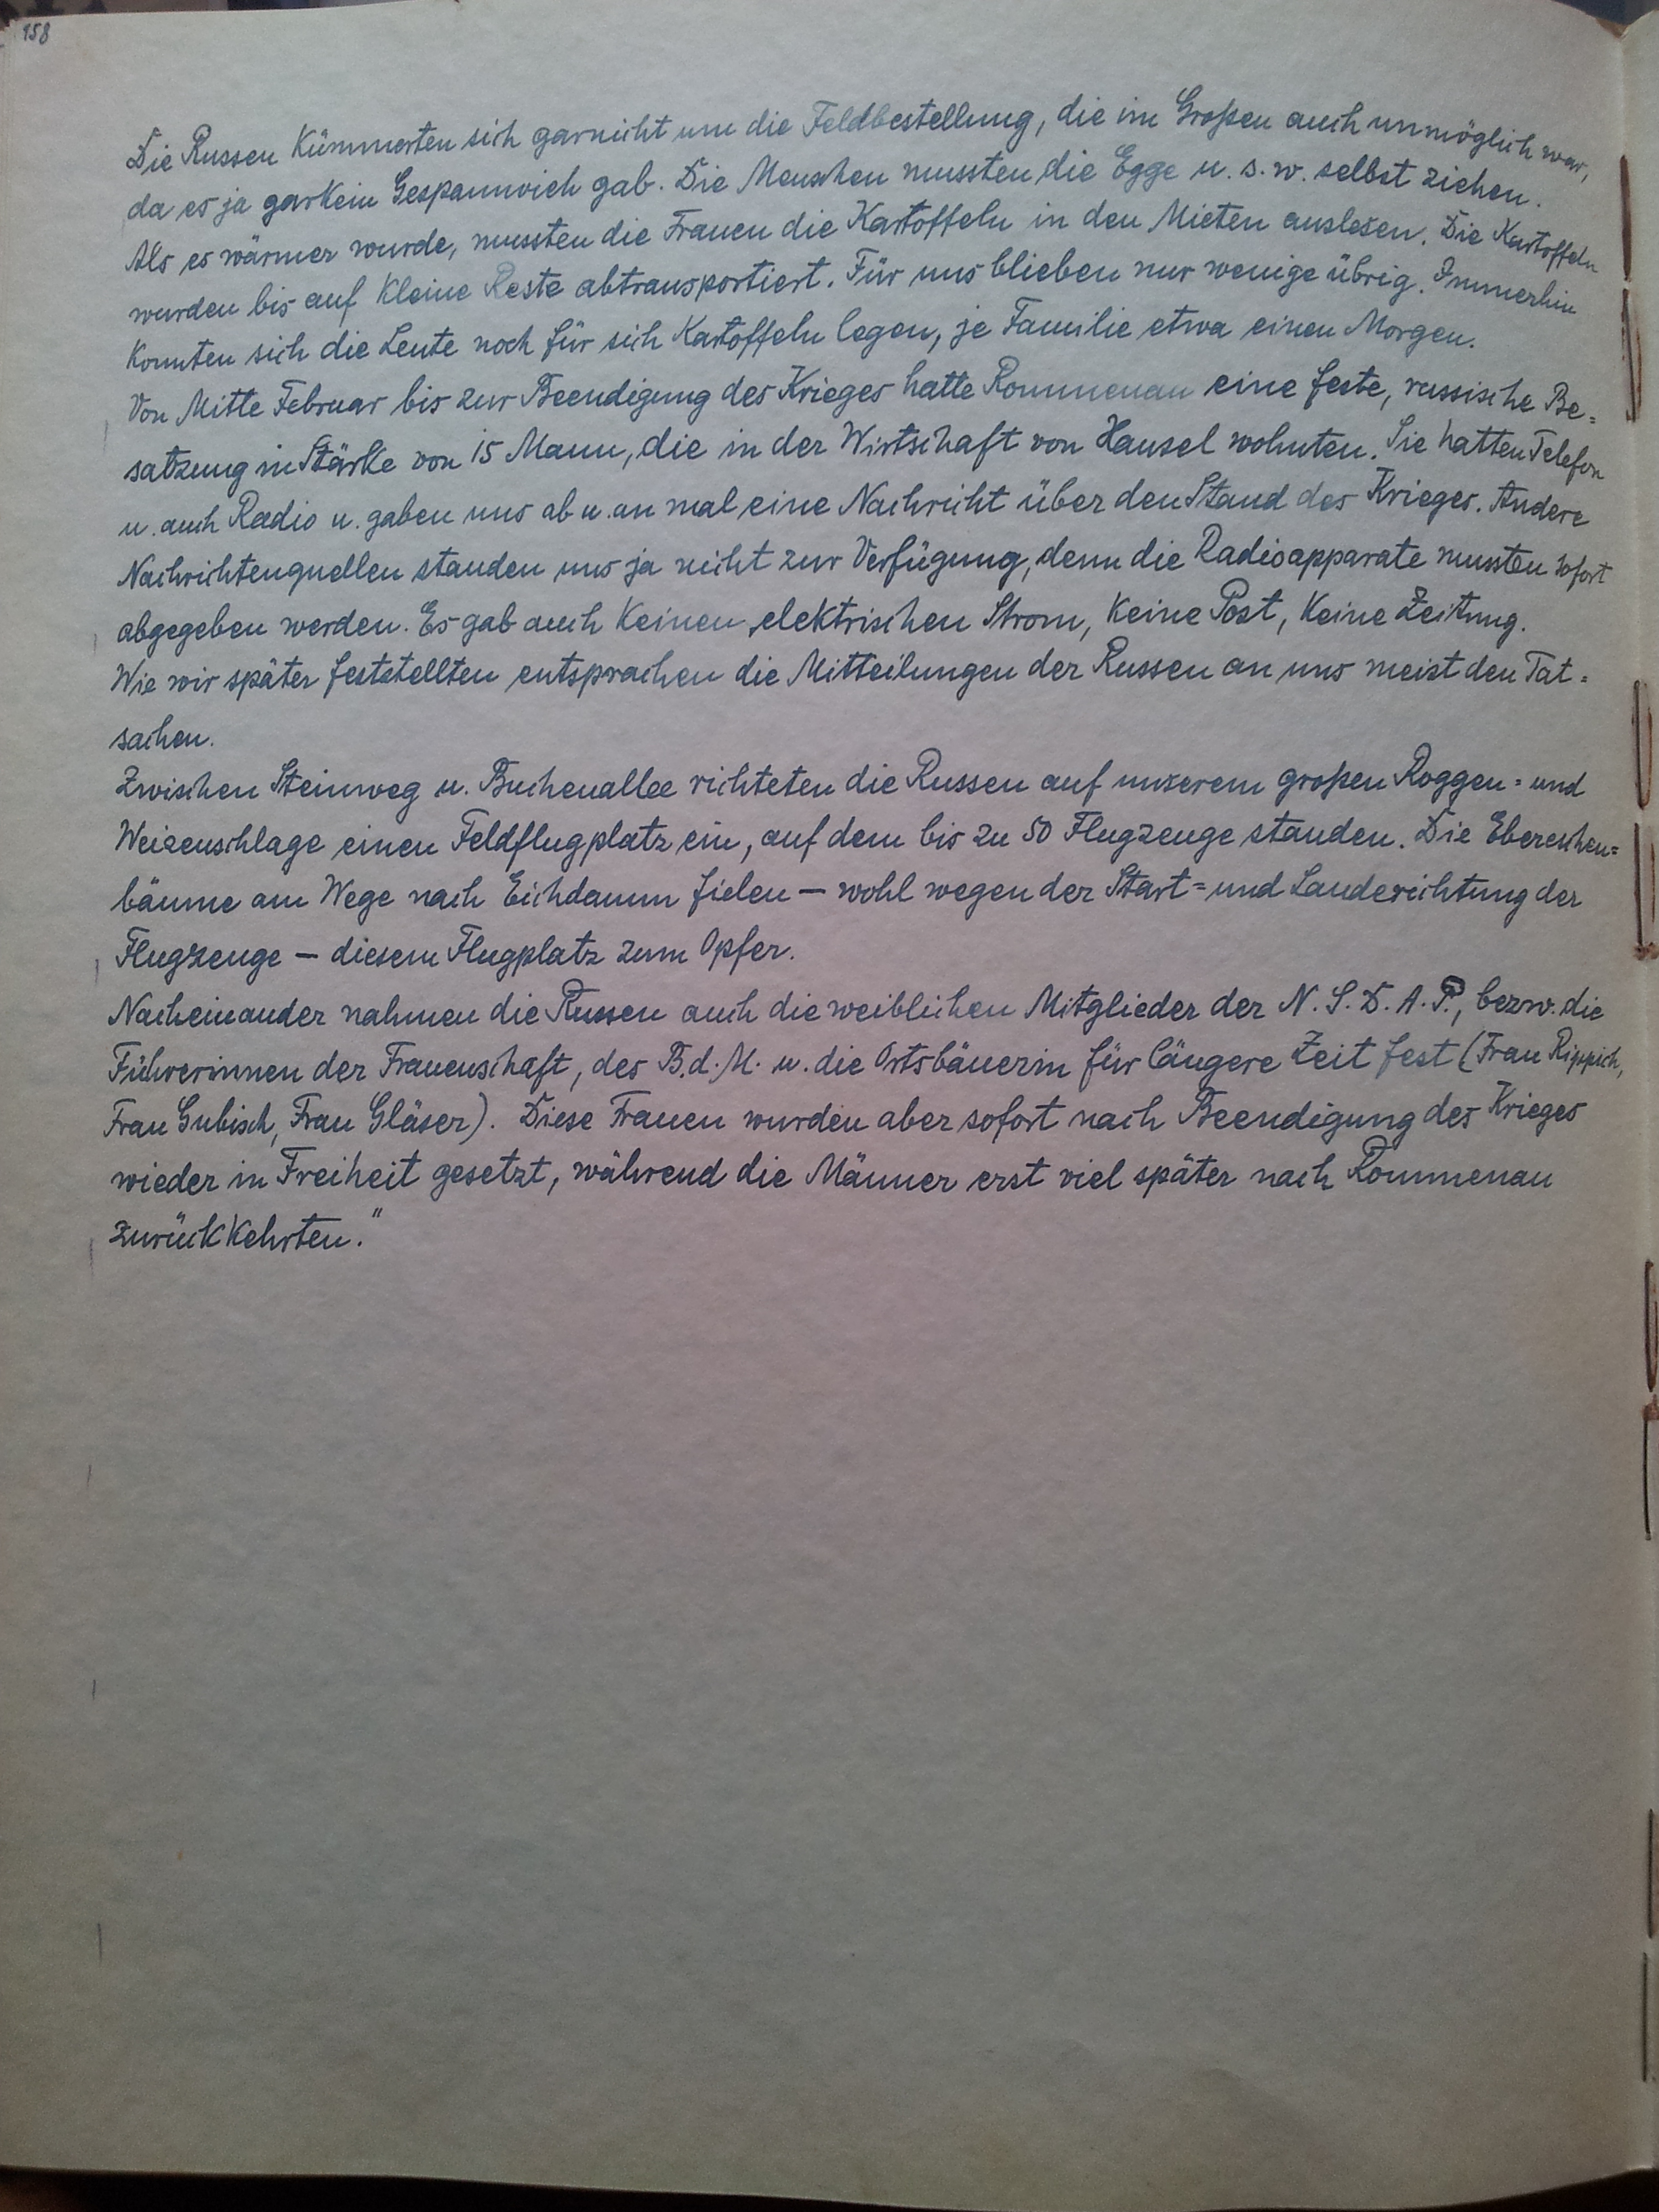 158
Die Russen kümmerten sich garnicht um die Feldbestellung, die im Großen auch unmöglich war,
da es ja garkein Gespannvieh gab. Die Menschen mussten die Egge u. s. w. selbst ziehen.
Als es wärmer wurde, mussten die Frauen die Kartoffeln in den Mieten auslesen. Die Kartoffeln
wurden bis auf kleine Reste abtransportiert. Für uns blieben nur wenige übrig. Immerhin
konnten sich die Leute noch für sich Kartoffeln legen, je Familie etwa einen Morgen.
Von Mitte Februar bis zur Beendigung des Krieges hatte Rommenau eine feste, russische Be=
satzung in Stärke von 15 Mann, die in der Wirtschaft von Hansel wohnten. Sie hatten Telefon
u. auch Radio u. gaben uns ab u. an mal eine Nachricht über den Stand des Krieges. Andere
Nachrichtenquellen standen uns ja nicht zur Verfügung, denn die Radioapparate mussten sofort
abgegeben werden. Es gab auch keinen elektrischen Strom, keine Post, keine Zeitung.
Wie wir später feststellten entsprachen die Mitteilungen der Russen an uns meist den Tat=
sachen.
Zwischen Steinweg u. Buchenallee richteten die Russen auf unserem großen Roggen= und
Weizenschlage einen Feldflugplatz ein, auf dem bis zu 50 Flugzeuge standen. Die Ebereschen=
bäume am Wege nach Eichdamm fielen — wohl wegen der Start= und Landerichtung der
Flugzeuge — diesem Flugplatz zum Opfer.
Nacheinander nahmen die Russen auch die weiblichen Mitglieder der N. S. D. A. P., bezw. die
Führerinnen der Frauenschaft, des B.d.M. u. die Ortsbäuerin für längere Zeit fest (Frau Rippich,
Frau Gubisch, Frau Gläser). Diese Frauen wurden aber sofort nach Beendigung des Krieges
wieder in Freiheit gesetzt, während die Männer erst viel später nach Rommenau
zurückkehrten."